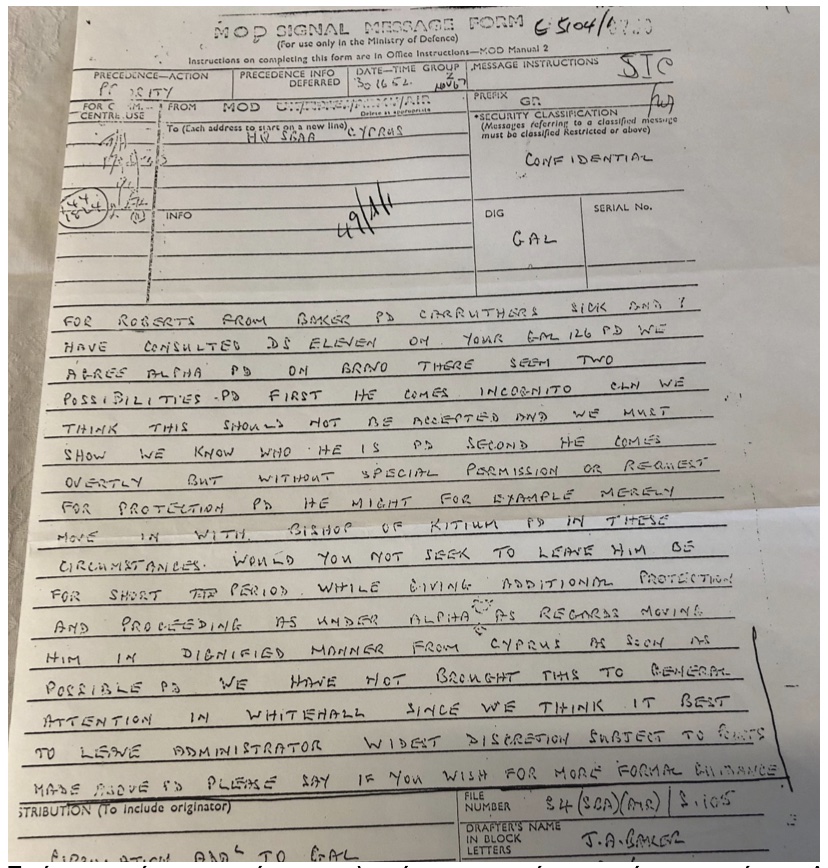 MOD SIGNAL MESSAGE FORM
(For use only in the Ministry of Defence)
Instructions on completing this form are in Office Instructions—MOD Manual 2
PRECEDENCE—ACTION
PRECEDENCE INFO
DEFERRED
DATE—TIME GROUP
301652 Z
NOV 67
MESSAGE INSTRUCTIONS
STC
CENTRE USE
FROM MOD
Delete as appropriate
PREFIX
GR
To (Each address to start on a new line)
HQ SBAA CYPRUS
*SECURITY CLASSIFICATION
(Messages referring to a classified message
must be classified Restricted or above)
CONFIDENTIAL
49/1/1
INFO
DIG
GAL
SERIAL No.
FOR ROBERTS FROM BAKER PD CARRUTHERS SICK AND I
HAVE CONSULTED DS ELEVEN ON YOUR GAL 126 PD WE
AGREE ALPHA PD ON BRAVO THERE SEEM TWO
POSSIBILITIES PD FIRST HE COMES INCOGNITO CLN WE
THINK THIS SHOULD NOT BE ACCEPTED AND WE MUST
SHOW WE KNOW WHO HE IS PD SECOND HE COMES
OVERTLY BUT WITHOUT SPECIAL PERMISSION OR REQUEST
FOR PROTECTION PD HE MIGHT FOR EXAMPLE MERELY
MOVE IN WITH BISHOP OF KITIUM PD IN THESE
CIRCUMSTANCES WOULD YOU NOT SEEK TO LEAVE HIM BE
FOR SHORT PERIOD WHILE GIVING ADDITIONAL PROTECTION
AND PROCEEDING AS UNDER ALPHA AS REGARDS MOVING
HIM IN DIGNIFIED MANNER FROM CYPRUS AS SOON AS
POSSIBLE PD WE HAVE NOT BROUGHT THIS TO GENERAL
ATTENTION IN WHITEHALL SINCE WE THINK IT BEST
TO LEAVE ADMINISTRATOR WIDEST DISCRETION SUBJECT TO POINTS
MADE ABOVE PD PLEASE SAY IF YOU WISH FOR MORE FORMAL GUIDANCE
STRIBUTION (To include originator)
FILE
NUMBER
DRAFTER'S NAME
IN BLOCK
LETTERS
J.A. BAKER
TO GAL